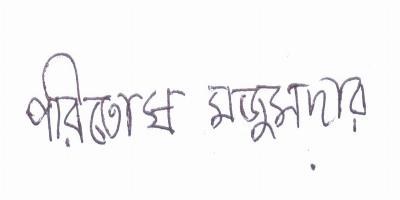 পরিতোষ মজুমদার